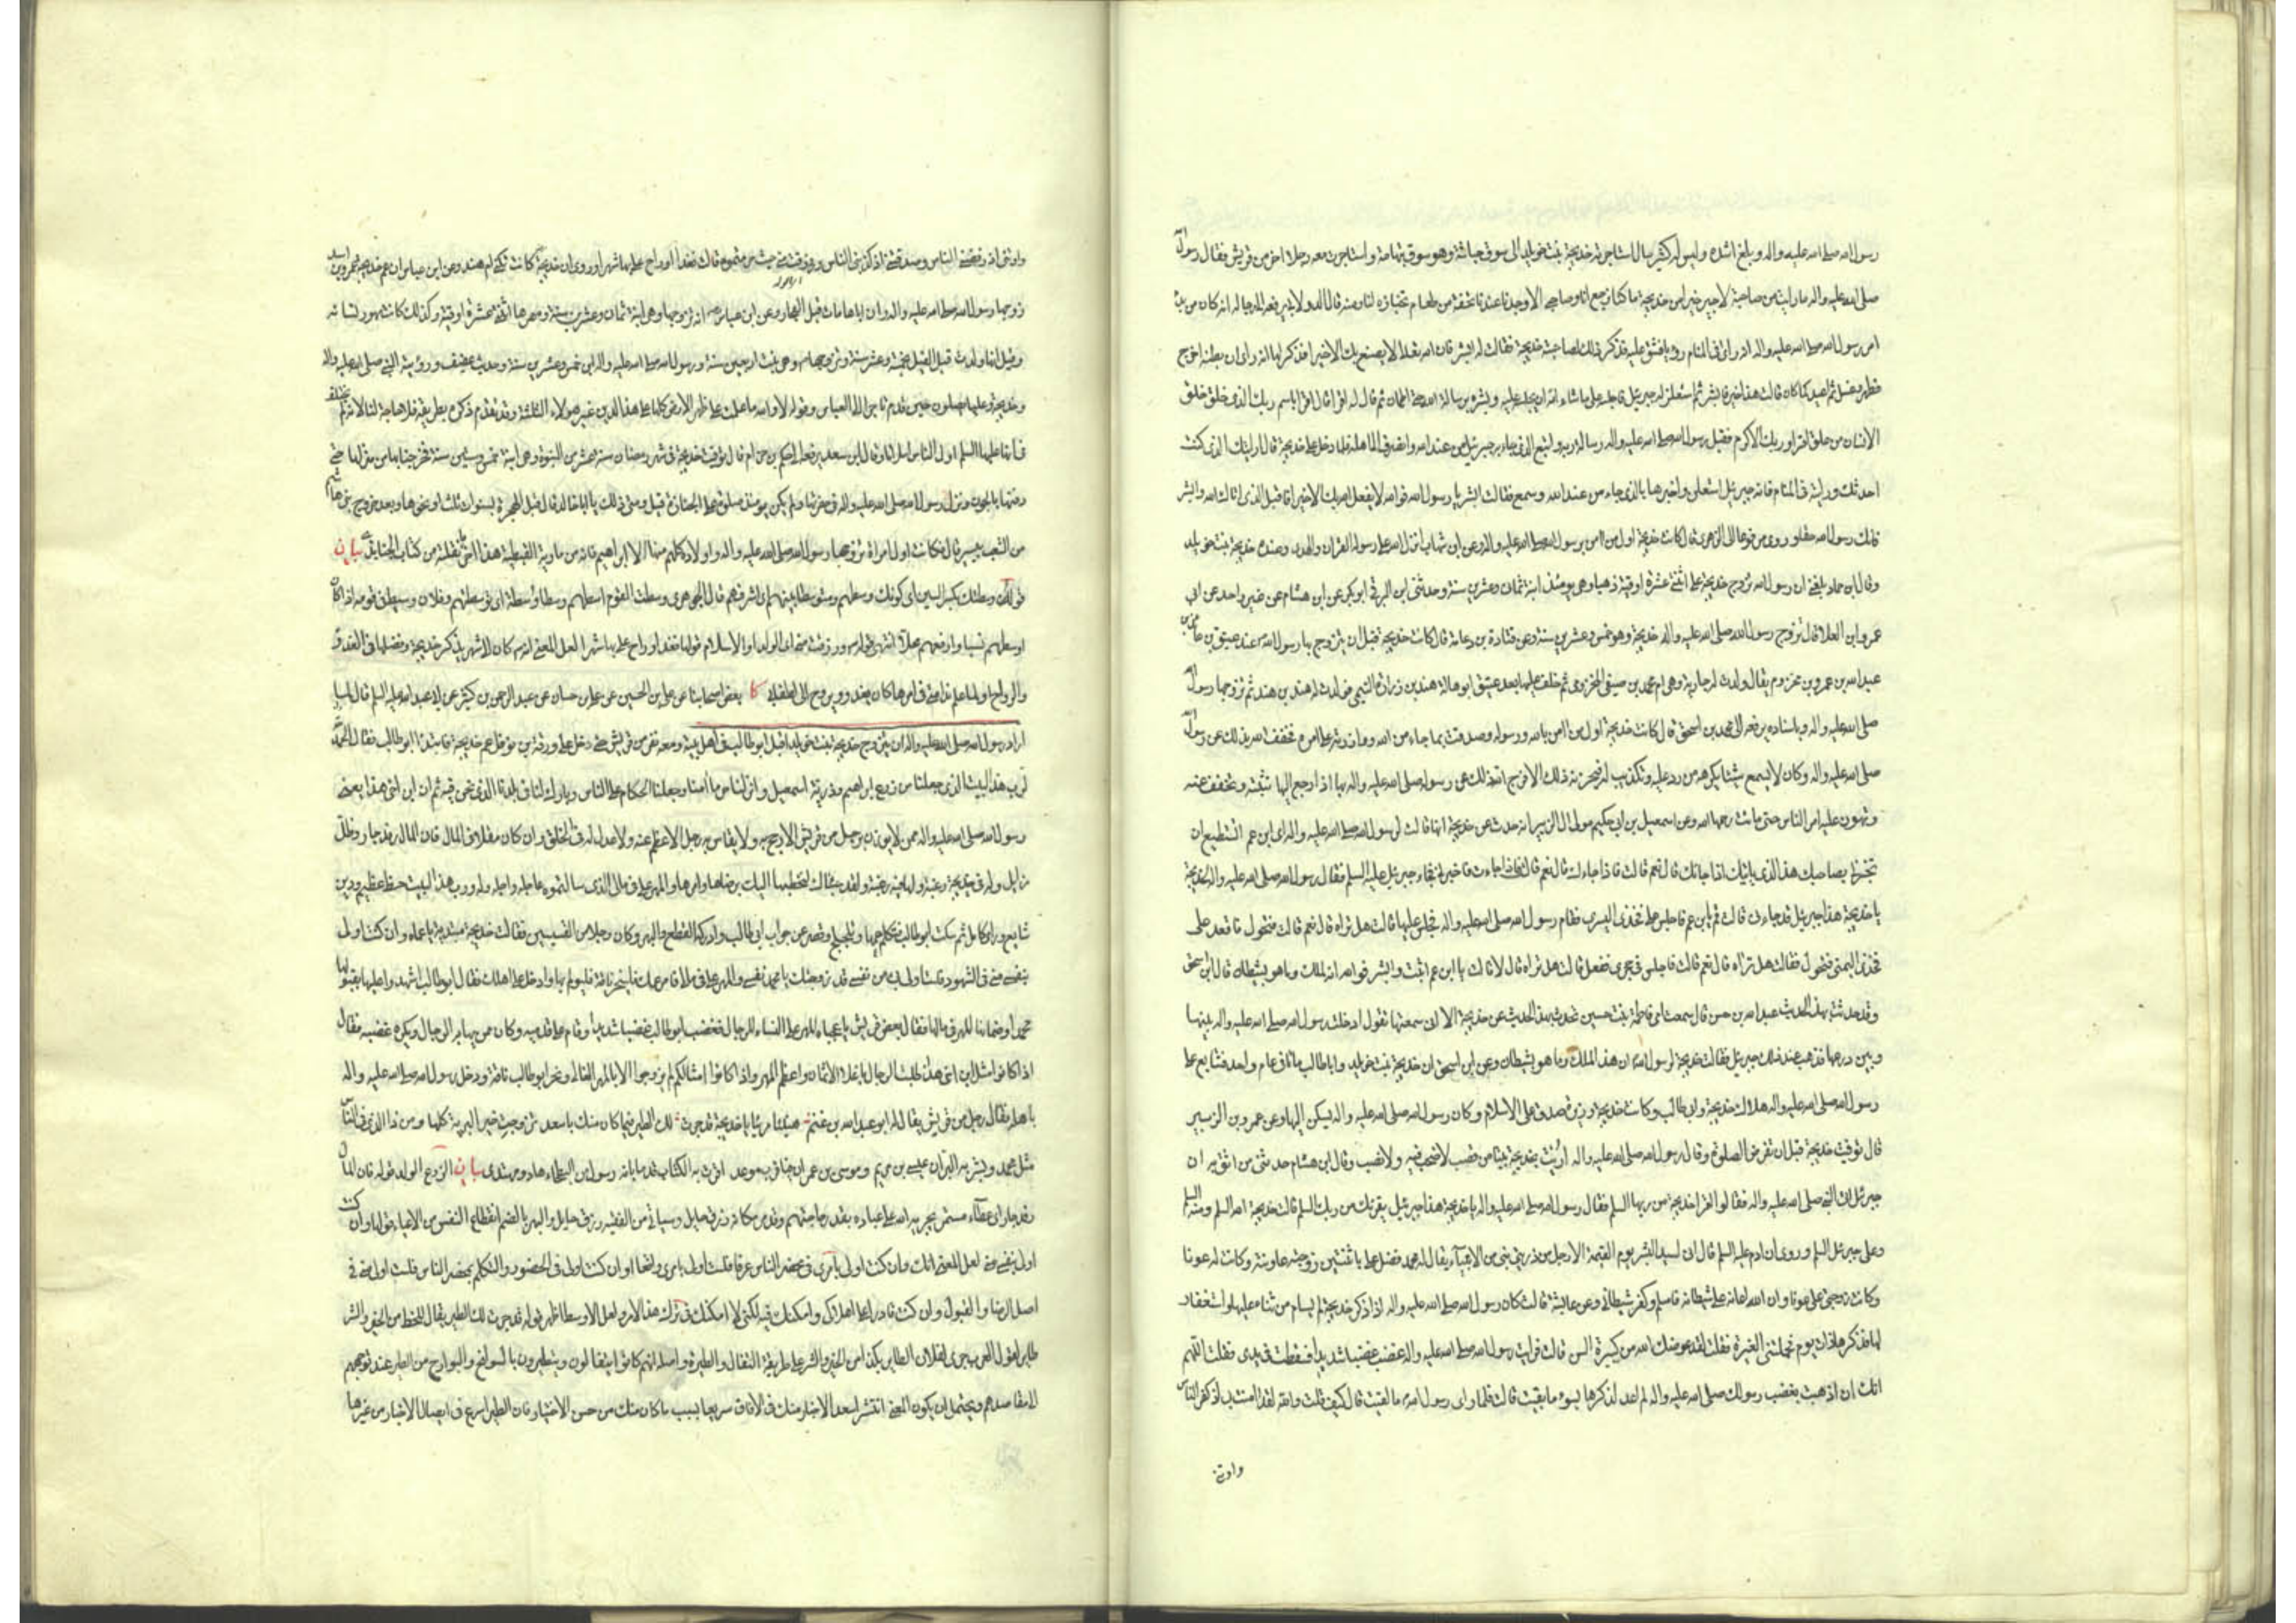 رسول الله صلى الله عليه واله وبلغ اشده وليس له كثير مال استاجرته خديجة بنت خويلد الى سوق حباشة وهو سوق بتهامة واستاجرت معه رجلا اخر من قريش فقال رسول الله
صلى الله عليه واله ما رايت من صاحبة لاجير خيرا من خديجة ما كنا نرجع انا وصاحبي الا وجدنا عندها تحفة من طعام تخباه لنا
امر رسول الله صلى الله عليه واله انه راى في المنام رؤيا فشق عليه فذكر ذلك لصاحبته خديجة فقالت له ابشر فان الله تعالى لا يصنع بك الا خيرا فذكر لها انه راى ان بطنه اخرج
فطهر وغسل ثم اعيد كما كان قالت هذا خير فابشر ثم استعلن له جبرئيل فاجلسه على ما شاء الله ان يجلسه عليه وبشره برسالة الله حتى اطمان ثم قال له اقرا قال اقرا باسم ربك الذي خلق خلق
الانسان من علق اقرا وربك الاكرم فقبل رسول الله صلى الله عليه واله رسالة ربه واتبع الذي جاء به جبرئيل من عند الله وانصرف الى اهله فلما دخل على خديجة قال ارايتك الذي كنت
احدثك ورايته في المنام فانه جبرئيل استعلن واخبرها بالذي جاءه من عند الله وسمع فقالت ابشر يا رسول الله فوالله لا يفعل الله بك الا خيرا فاقبل الذي اتاك الله وابشر
فانك رسول الله حقا وروي مرفوعا الى الزهري قال كانت خديجة اول من امن برسول الله صلى الله عليه واله وعن ابن شهاب انزل الله على رسوله القران والهدى وعنده خديجة بنت خويلد
وقال ابن حماد بلغني ان رسول الله تزوج خديجة على اثنتي عشرة اوقية ذهبا وهي يومئذ ابنة ثمان وعشرين سنة وحدثني ابن البرقي ابو بكر عن ابن هشام عن غير واحد عن ابي
عمرو ابن العلا قال تزوج رسول الله صلى الله عليه واله خديجة وهو ابن خمس وعشرين سنة وعن قتادة بن دعامة قال كانت خديجة قبل ان يتزوج بها رسول الله عند عتيق بن عائذ بن
عبد الله بن عمرو بن مخزوم يقال ولدت له جارية وهي ام محمد بن صيفي المخزومي ثم خلف عليها بعد عتيق ابو هالة هند بن زرارة التميمي فولدت له هند بن هند ثم تزوجها رسول الله
صلى الله عليه واله وباسناده يرفعه الى محمد بن اسحق قال كانت خديجة اول من امن بالله ورسوله وصدقت بما جاء من الله ووازرته على امره فخفف الله بذلك عن رسول الله
صلى الله عليه واله وكان لا يسمع شيئا يكرهه من رد عليه وتكذيب له فيحزنه ذلك الا فرج الله ذلك عن رسوله صلى الله عليه واله بها اذا رجع اليها تثبته وتخفف عنه
وتهون عليه امر الناس حتى ماتت رحمها الله وعن اسمعيل بن ابي حكيم مولى ال الزبير انه حدث عن خديجة انها قالت لرسول الله صلى الله عليه واله اي ابن عم اتستطيع ان
تخبرني بصاحبك هذا الذي ياتيك اذا جاءك قال نعم قالت فاذا جاءك فاخبرني فجاء جبرئيل عليه السلم فقال رسول الله صلى الله عليه واله لخديجة
يا خديجة هذا جبرئيل قد جاءني قالت قم يابن عم فاجلس على فخذي اليسرى فقام رسول الله صلى الله عليه واله فجلس عليها قالت هل تراه قال نعم قالت فتحول فاقعد على
فخذي اليمنى فتحول فقالت هل تراه قال نعم قالت فاجلس في حجري ففعل قالت هل تراه قال لا قالت يا ابن عم اثبت وابشر فوالله انه لملك وما هو بشيطان قال ابن اسحق
وقد حدثت بهذا الحديث عبد الله بن حسن قال سمعت امي فاطمة بنت حسين تحدث بهذا الحديث عن خديجة الا اني سمعتها تقول ادخلت رسول الله صلى الله عليه واله بينها
وبين درعها فذهب عند ذلك جبرئيل فقالت خديجة لرسول الله ان هذا لملك وما هو بشيطان وعن ابن اسحق ان خديجة بنت خويلد وابا طالب ماتا في عام واحد فتتابع على
رسول الله صلى الله عليه واله هلاك خديجة وابي طالب وكانت خديجة وزيرة صدق على الاسلام وكان رسول الله صلى الله عليه واله يسكن اليها وعن عمرو بن الزبير
قال توفيت خديجة قبل ان تفرض الصلوة وقال رسول الله صلى الله عليه واله اريت بخديجة بيتا من قصب لا صخب فيه ولا نصب وقال ابن هشام حدثني من اثق به ان
جبرئيل اتى النبي صلى الله عليه واله فقال اقرا خديجة من ربها السلم فقال رسول الله صلى الله عليه واله يا خديجة هذا جبرئيل يقرئك من ربك السلم قالت خديجة الله السلم ومنه السلم
وعلى جبرئيل السلم وروي ان ادم عليه السلم قال اني لسيد البشر يوم القيمة الا رجل من ذريتي نبي من الانبياء يقال له محمد فضل علي باثنتين زوجته عاونته وكانت له عونا
وكانت زوجتي علي عونا وان الله اعانه على شيطانه فاسلم وكفر شيطاني وعن عايشة قالت كان رسول الله صلى الله عليه واله اذا ذكر خديجة لم يسام من ثناء عليها واستغفار
لها فذكرها ذات يوم فحملتني الغيرة فقلت لقد عوضك الله من كبيرة السن قالت فرايت رسول الله صلى الله عليه واله غضب غضبا شديدا فسقطت في يدي فقلت اللهم
انك ان اذهبت بغضب رسولك صلى الله عليه واله لم اعد لذكرها بسوء ما بقيت قالت فلما راى رسول الله ما لقيت قال كيف قلت والله لقد امنت بي اذ كفر الناس
واوتني
واوتني اذ رفضني الناس وصدقتني اذ كذبني الناس ورزقت مني حيث حرمتموه قالت فغدا وراح علي بها شهرا وروي ان خديجة كانت تكنى ام هند وعن ابن عباس ان عم خديجة عمرو بن اسد
زوجها رسول الله صلى الله عليه واله وان اباها مات قبل الفجار وعن ابن عباس انه تزوجها وهي ابنة ثمان وعشرين سنة ومهرها اثنتي عشرة اوقية وكذلك كانت مهور نسائه
وقيل انها ولدت قبل الفيل بخمس عشرة سنة وتزوجها وهي بنت اربعين سنة ورسول الله صلى الله عليه واله ابن خمس وعشرين سنة وحديث عفيف ورؤية النبي صلى الله عليه واله
وخديجة وعليا يصلون حين قدم تاجرا الى العباس وقوله لا والله ما علمت على ظهر الارض كلها على هذا الدين غير هؤلاء الثلثة وقد تقدم ذكره بطريقه فلا حاجة لنا
دفناها بالحجون ونزل رسول الله صلى الله عليه واله في حفرتها ولم يكن يومئذ صلوة على الجنازة قيل ومتى ذلك يا ابا خالد قال قبل الهجرة بسنوات ثلث او نحوها وبعد خروج بني هاشم
من الشعب بيسير قال فكانت اول امراة تزوجها رسول الله صلى الله عليه واله واولاده كلهم منها الا ابراهيم فانه من مارية القبطية هذا اخر ما نقلته من كتاب الجنابذي بيان
اوسطهم نسبا وارفعهم محلا انتهى قوله ورزقت مني اي الولد او الاسلام قولها فغدا وراح علي بها شهرا لعل المعنى انه كان شهرا يذكر خديجة وفضلها في الغدو
والرواح كا بعض اصحابنا عن علي بن الحسين عن علي بن حسان عن عبد الرحمن بن كثير عن ابي عبد الله عليه السلم قال لما
اراد رسول الله صلى الله عليه واله ان يتزوج خديجة بنت خويلد اقبل ابو طالب في اهل بيته ومعه نفر من قريش حتى دخل على ورقة بن نوفل عم خديجة فابتدا ابو طالب فقال الحمد
لرب هذا البيت الذي جعلنا من زرع ابراهيم وذرية اسمعيل وانزلنا حرما امنا وجعلنا الحكام على الناس وبارك لنا في بلدنا الذي نحن فيه ثم ان ابن اخي هذا يعني
رسول الله صلى الله عليه واله ممن لا يوزن برجل من قريش الا رجح به ولا يقاس به رجل الا عظم عنه ولا عدل له في الخلق وان كان مقلا في المال فان المال رفد جار وظل
زايل وله في خديجة رغبة ولها فيه رغبة ولقد جئناك لنخطبها اليك برضاها وامرها والمهر علي في مالي الذي سالتموه عاجله واجله وله ورب هذا البيت حظ عظيم ودين
شايع وراي كامل ثم سكت ابو طالب فتكلم عمها وتلجلج وقصر عن جواب ابي طالب وادركه القطع والبهر وكان رجلا من القسيسين فقالت خديجة مبتدئة يا عماه وان كنت اولى
بنفسي مني في الشهود فلست اولى بي من نفسي قد زوجتك يا محمد نفسي والمهر علي في مالي فامر عمك فلينحر ناقة فليولم بها وادخل على اهلك فقال ابو طالب اشهدوا عليها بقبولها
محمدا وضمانها المهر في مالها فقال بعض قريش يا عجباه المهر على النساء للرجال فغضب ابو طالب غضبا شديدا وقام على قدميه وكان ممن يهابه الرجال ويكره غضبه فقال
اذا كانوا مثل ابن اخي هذا طلبت الرجال باغلى الاثمان واعظم المهر واذا كانوا امثالكم لم يزوجوا الا بالمهر الغالي ونحر ابو طالب ناقة ودخل رسول الله صلى الله عليه واله
باهله فقال رجل من قريش يقال له ابو عبد الله بن غنم هنيئا مريئا يا خديجة قد جرت لك الطير فيما كان منك باسعد تزوجت خير البرية كلها ومن ذا الذي في الناس
مثل محمد وبشر به البران عيسى بن مريم وموسى بن عمران فيا قرب موعد اقرت به الكتاب قدما بانه رسول من البطحاء هاد ومهتدي بيان الزرع الولد قوله فان المال
رفد جار اي عطاء مستمر يجريه الله على عباده بقدر حاجتهم والبهر بالضم انقطاع النفس من الاعياء قولها وان كنت
اولى بنفسي مني لعل المعنى انك وان كنت اولى بامري في محضر الناس عرفا فلست اولى بامري واقعا او ان كنت اولى في الحضور والتكلم بمحضر الناس فلست اولى مني في
اصل الرضا والقبول وان كنت قادرا على اهلاكي وامكنك فيه لكني لا امكنك في ترك هذا الامر ولعل الاوسط اظهر قوله قد جرت لك الطير يقال للحظ من الخير والشر
طاير لقول العرب جرى لفلان الطاير بكذا من الخير والشر على طريقة التفال والطيرة واصله انهم كانوا يتفالون ويتطيرون بالسوانح والبوارح من الطير عند توجههم
الى مقاصدهم ويحتمل ان يكون المعنى انتشر اسعد الاخبار منك في الافاق سريعا بسبب ما كان منك من حسن الاختيار فان الطير اسرع في ايصال الاخبار من غيرها